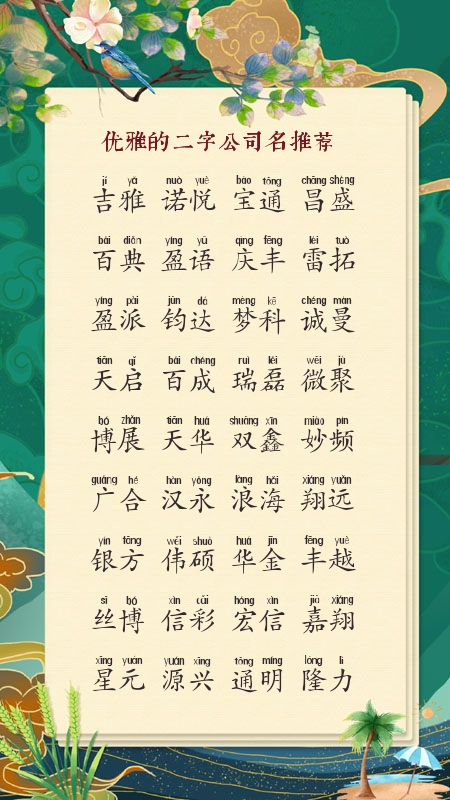 优雅的二字公司名推荐
jí yǎ nuò yuè bǎo tōng chāng shéng
吉雅 诺悦 宝通 昌盛
bǎi diǎn yíng yǔ qìng fēng léi tuò
百典 盈语 庆丰 雷拓
yíng pài jūn dá mèng kē chéng màn
盈派 钧达 梦科 诚曼
tiān qǐ bǎi chéng ruì lěi wēi jù
天启 百成 瑞磊 微聚
bó zhǎn tiān huá shuāng xīn miào pín
博展 天华 双鑫 妙频
guǎng hé hàn yǒng làng hǎi xiáng yuǎn
广合 汉永 浪海 翔远
yín fāng wěi shuò huá jīn fēng yuè
银方 伟硕 华金 丰越
sī bó xìn cǎi hóng xìn jiā xiáng
丝博 信彩 宏信 嘉翔
xīng yuán yuán xīng tōng míng lóng lì
星元 源兴 通明 隆力